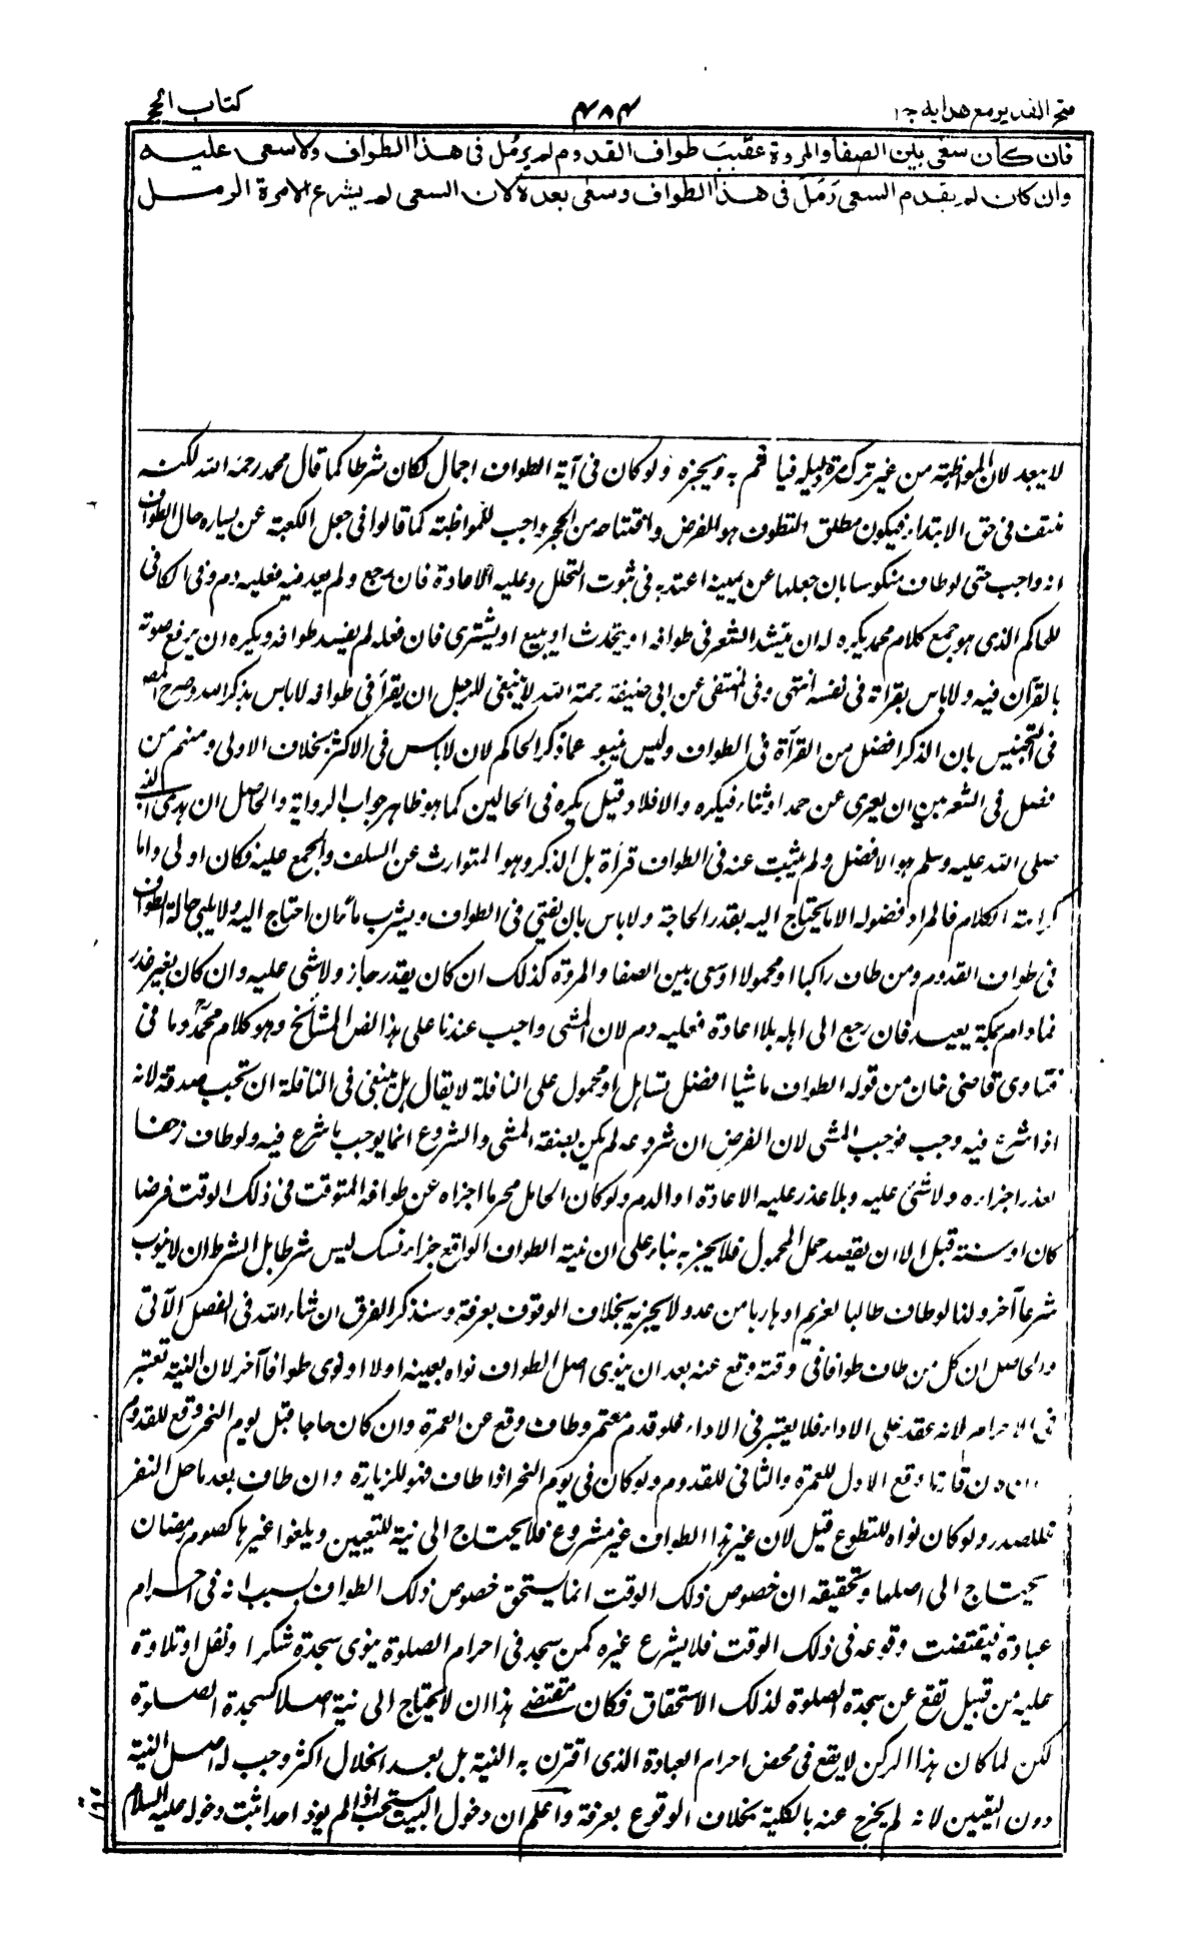 فتح القدير مع هدايه ج ١
٤٨٤
كتاب الحج
فان كان سعى بين الصفا والمروة عقيب طواف القدوم لم يرمل فى هذا الطواف ولا سعى عليه
وان كان لم يقدم السعى رمل فى هذا الطواف وسعى بعده لان السعى لم يشرع الا مرة الرمل
لا يبعد لان المواظبة من غير ترك مرة دليله فيأثم به ويجزه ولو كان فى آية الطواف اجمال لكان شرطا كما قال محمد رحمه الله لكنه
منتف فى حق الابتداء فيكون مطلق التطوف هو الفرض وافتتاحه من الحجر واجب للمواظبة كما قالوا فى جعل الكعبة عن يساره حال الطواف
انه واجب حتى لو طاف منكوسا بان جعلها عن يمينه اعتد به فى ثبوت التحلل وعليه الاعادة فان رجع ولم يعد فيه فعليه دم وفى الكافى
للحاكم الذى هو جمع كلام محمد يكره له ان ينشد الشعر فى طوافه او يتحدث او يبيع او يشترى فان فعله لم يفسد طوافه ويكره ان يرفع صوته
بالقرآن فيه ولا باس بقراءة فى نفسه انتهى وفى المنتقى عن ابى حنيفة رحمه الله لا ينبغى للرجل ان يقرأ فى طوافه لا باس بذكر الله وصرح المصـ
فى التجنيس بان الذكر افضل من القرآة فى الطواف وليس ينبو عما ذكر الحاكم لان لا باس فى الاكثر بخلاف الاولى ومنهم من
فصل فى الشعر بين ان يعرى عن حمد او ثناء فيكره والا فلا وقيل يكره فى الحالين كما هو ظاهر جواب الرواية والحاصل ان هدى النبى
صلى الله عليه وسلم هو الافضل ولم يثبت عنه فى الطواف قرأة بل الذكر وهو المتوارث عن السلف والمجمع عليه فكان اولى واما
كراهة الكلام فالمراد فضوله الا ما يحتاج اليه بقدر الحاجة ولا باس بان يفتى فى الطواف ويشرب ماء ان احتاج اليه ولا يلبى حالة الطواف
فى طواف القدوم ومن طاف راكبا او محمولا او سعى بين الصفا والمروة كذلك ان كان بعذر جاز ولا شى عليه وان كان بغير عذر
فما دام بمكة يعيد فان رجع الى اهله بلا اعادة فعليه دم لان المشى واجب عندنا على هذا نص المشائخ وهو كلام محمد وما فى
فتاوى قاضى خان من قوله الطواف ماشيا افضل تساهل او محمول على النافلة لا يقال بل ينبغى فى النافلة ان تجب صدقة لانه
اذا شرع فيه وجب فوجب المشى لان الفرض ان شروعه لم يكن بصفة المشى والشروع انما يوجب ما شرع فيه ولو طاف زحفا
لعذر اجزاءه ولا شئ عليه وبلا عذر عليه الاعادة او الدم ولو كان الحامل محرما اجزاه عن طوافه المتوقت فى ذلك الوقت فرضا
كان او سنة قيل الا ان يقصد حمل المحمول فلا يجزيه بناء على ان نية الطواف الواقع جزء نسك ليس شرطا بل الشرط ان لا ينوى
شرعا آخر ولذا لو طاف طالبا لغريم او هاربا من عدو لا يجزيه بخلاف الوقوف بعرفة وسنذكر الفرق ان شاء الله فى الفصل الآتى
والحاصل ان كل من طاف طوافا فى وقته وقع عنه بعد ان ينوى اصل الطواف نواه بعينه اولا او نوى طوافا آخر لان النية تعتبر
فى الاحرام لانه عقد على الاداء فلا يعتبر فى الاداء فلو قدم معتمر وطاف وقع عن العمرة وان كان حاجا قبل يوم النحر وقع للقدوم
وان كان قارنا وقع الاول للعمرة والثانى للقدوم ولو كان فى يوم النحر اذا طاف فهو للزيارة وان طاف بعد ما حل النفر
فللصدر ولو كان نواه للتطوع قيل لان غير هذا الطواف غير مشروع فلا يحتاج الى نية للتعيين ويلغوا غيرها كصوم رمضان
يحتاج الى اصلها وتحقيقه ان خصوص ذلك الوقت انما يستحق خصوص ذلك الطواف بسبب انه فى احرام
عبادة فيقتضت وقوعه فى ذلك الوقت فلا يشرع غيره كمن سجد فى احرام الصلوة ينوى سجدة شكر او نفل او تلاوة
عليه من قبيل تقع عن سجدة الصلوة لذلك الاستحقاق فكان مقتضى هذا ان لا يحتاج الى نية اصلا كسجدة الصلوة
لكن لما كان هذا الركن لا يقع فى محض احرام العبادة الذى اقترن به النية بل بعد انحلال اكثر وجب له اصل النية
دون التعيين لانه لم يخرج عنه بالكلية بخلاف الوقوع بعرفة واعلم ان دخول البيت مستحب اذا لم يوذ احدا ثبت دخوله عليه السلام